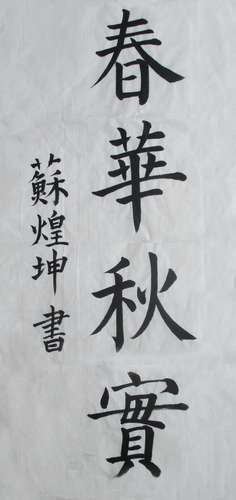 春華秋實
蘇煌坤書